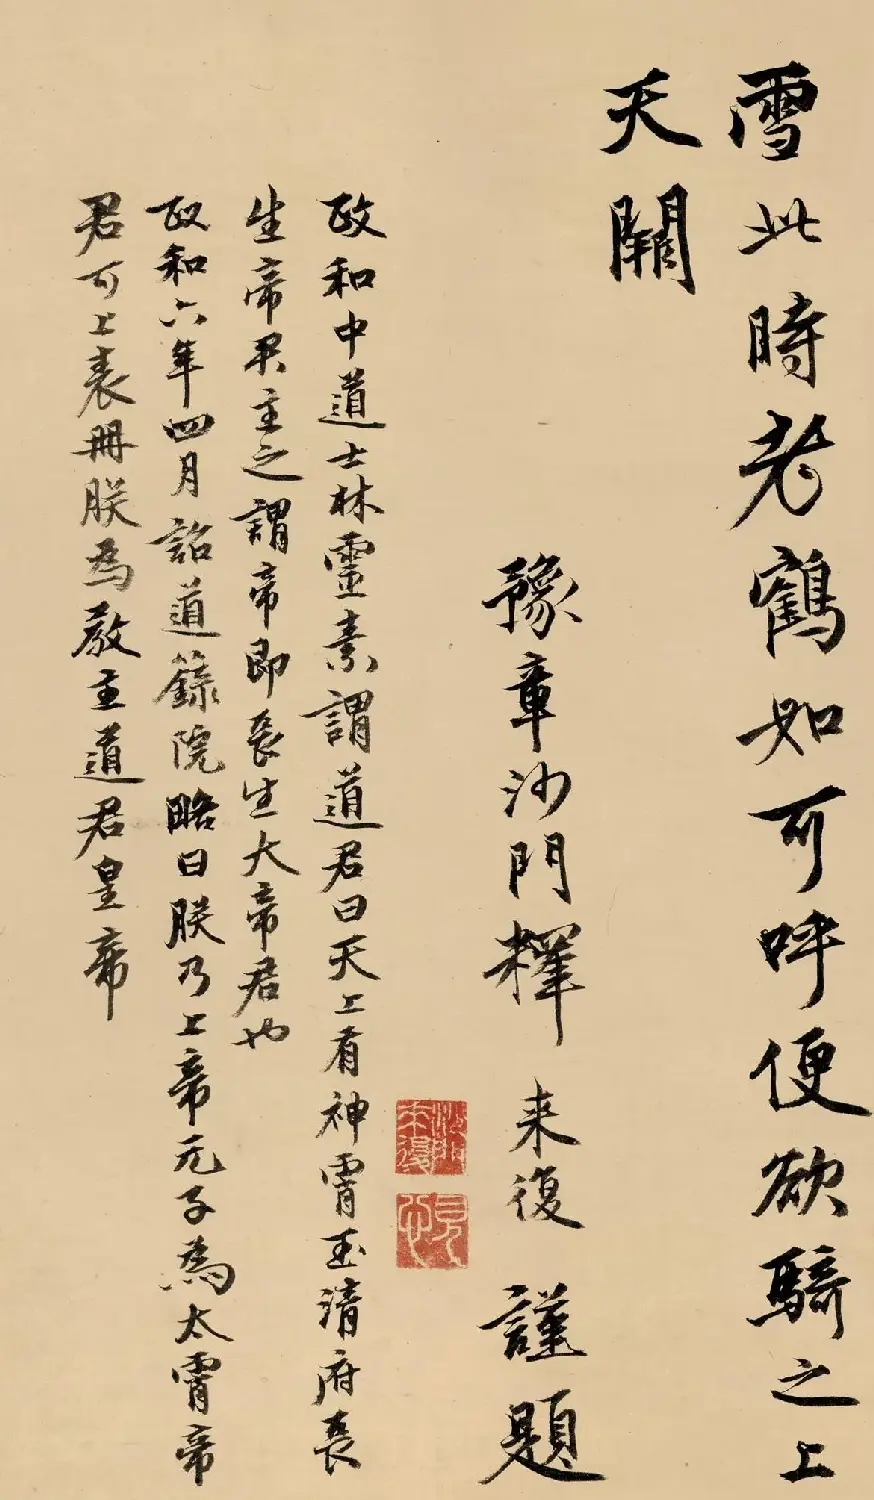 雪此時老鶴如可呼便欲騎之上
天關
豫章沙門釋来復謹題
政和中道士林靈素謂道君曰天上有神霄玉清府長
生帝君主之謂帝即長生大帝君也
政和六年四月詔道籙院略曰朕乃上帝元子為太霄帝
君可上表冊朕為教主道君皇帝
沙門来復
見心